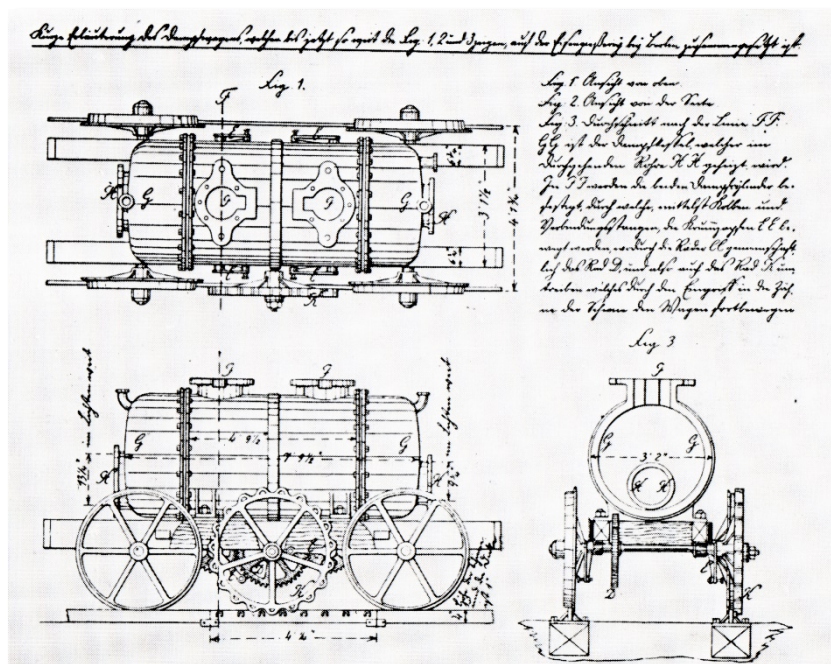 Kurze Erläuterung des Dampfwagens, welcher bis jetzt so weit die Fig. 1, 2 und 3 zeigen, auf der Eisengießerei bey Berlin zusammengesetzt ist.
Fig. 1.
Fig 1. Ansicht von oben.
Fig. 2. Ansicht von der Seite
Fig. 3. Durchschnitt nach der Linie FF.
GG ist der Dampfkessel, welcher im
durchgehenden Rohre HH geheizt wird.
In JJ werden die beiden Dampfzylinder be-
festigt, durch welche, mittelst Kolben und
Verbindungsstangen, die Krummzapfen EE be-
wegt werden, wodurch die Räder gemeinschaft-
lich das Rad D, und also auch das Rad K um-
treiben welches durch den Eingriff in die Zäh-
ne der Schiene den Wagen fortbewegen
F
H G J J G H
3' 1½"
4' 1¾"
K
Fig. 3
J J
im Lichten weit
4' 9½"
G G
H H
K
4' ¾"
J
G G
3' 2"
H H
K